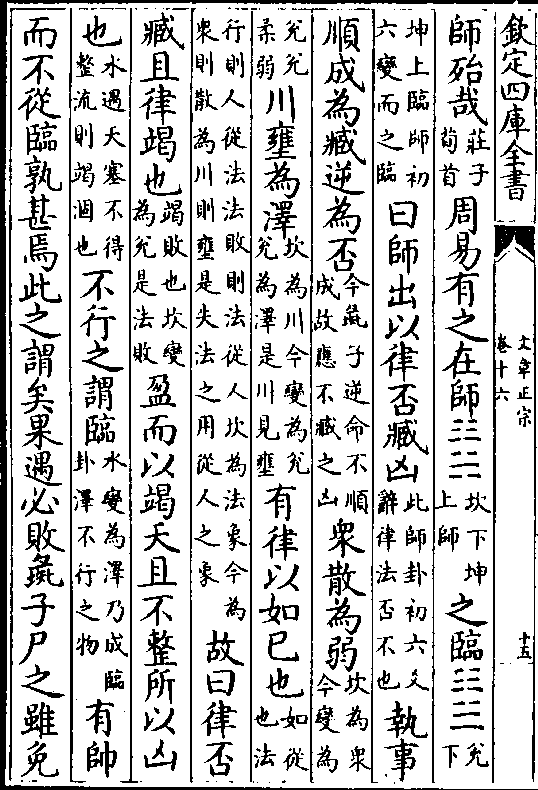 欽定四庫全書
文章正宗
卷十六
十五
師殆哉莊子荀首周易有之在師䷆坎下坤上師之臨䷒兌下
坤上臨師初六變而之臨曰師出以律否臧凶此師卦初六爻辭律法否不也執事
順成為臧逆為否今彘子逆命不順成故應不臧之凶衆散為弱坎為衆今變為
兌兌柔弱川壅為澤坎為川今變為兌兌為澤是川見壅有律以如已也如從也法
行則人從法法敗則法從人坎為法象今為衆則散為川則壅是失法之用從人之象故曰律否
臧且律竭也竭敗也坎變為兌是法敗盈而以竭夭且不整所以凶
也水遇夭塞不得整流則竭涸也不行之謂臨水變為澤乃成臨卦澤不行之物有帥
而不從臨孰甚焉此之謂矣果遇必敗彘子尸之雖免